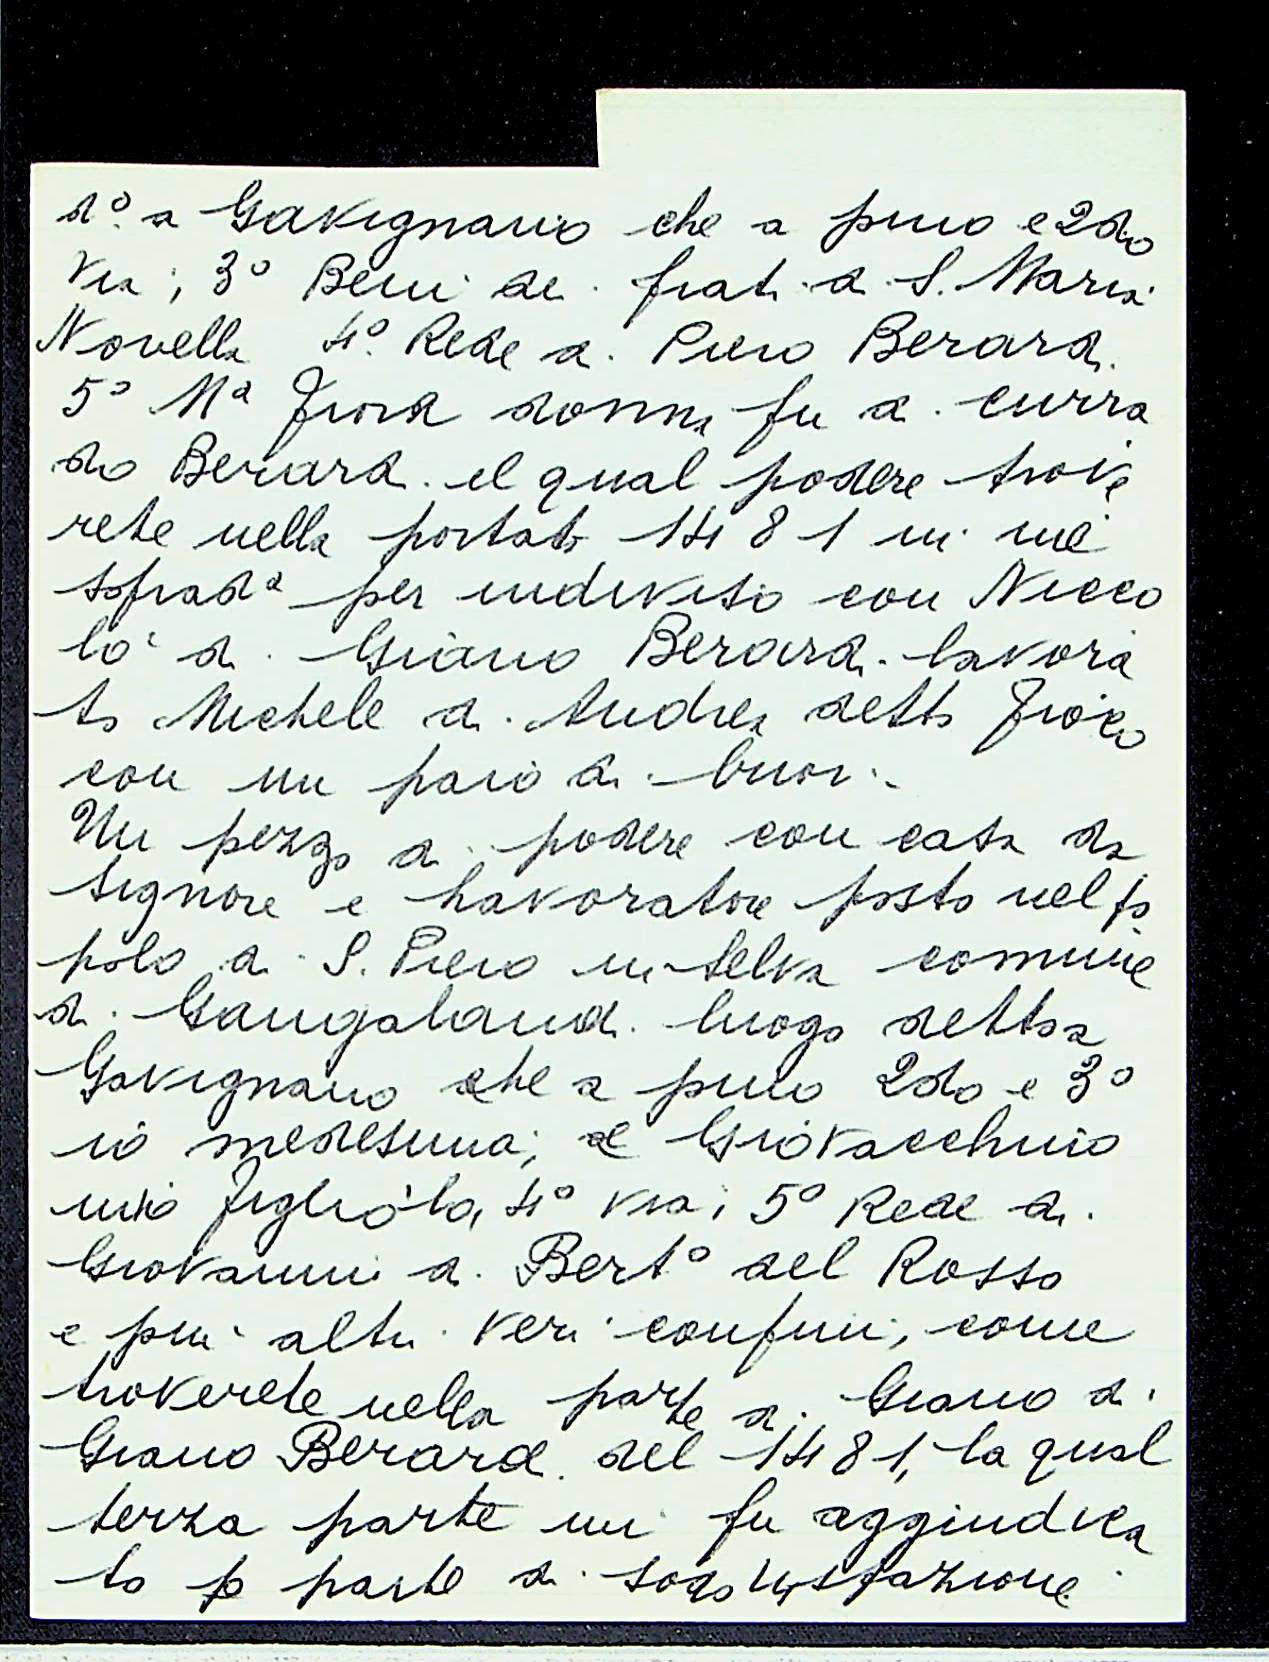 d.º a Gavignano che a primo e 2do
via; 3º Beni de frati di S. Maria
Novella 4º. Rede di Piero Berardi.
5º Mª Fiora donna fu di Curra
do Berardi. el qual podere trove
rete nella portata 1481 in me
sopradª per indiviso con Nicco
lò di Giano Berardi. lavora
to Michele di Andrea detto
con un paio di buoi.
Un pezzo di podere con casa da
signore e lavoratore posto nel po
polo di S. Piero in Selva comune
di Gangalandi luogo detto a
Gavignano che a primo 2do e 3º
io medesima; e Giovacchino
mio figliolo, 4º via; 5º Rede di
Giovanni di Bertº del Rosso
e più altri veri confini, come
troverete nella parte di Giano di
Giano Berardi del 1481, la qual
terza parte mi fu aggiudica
ta p parte di